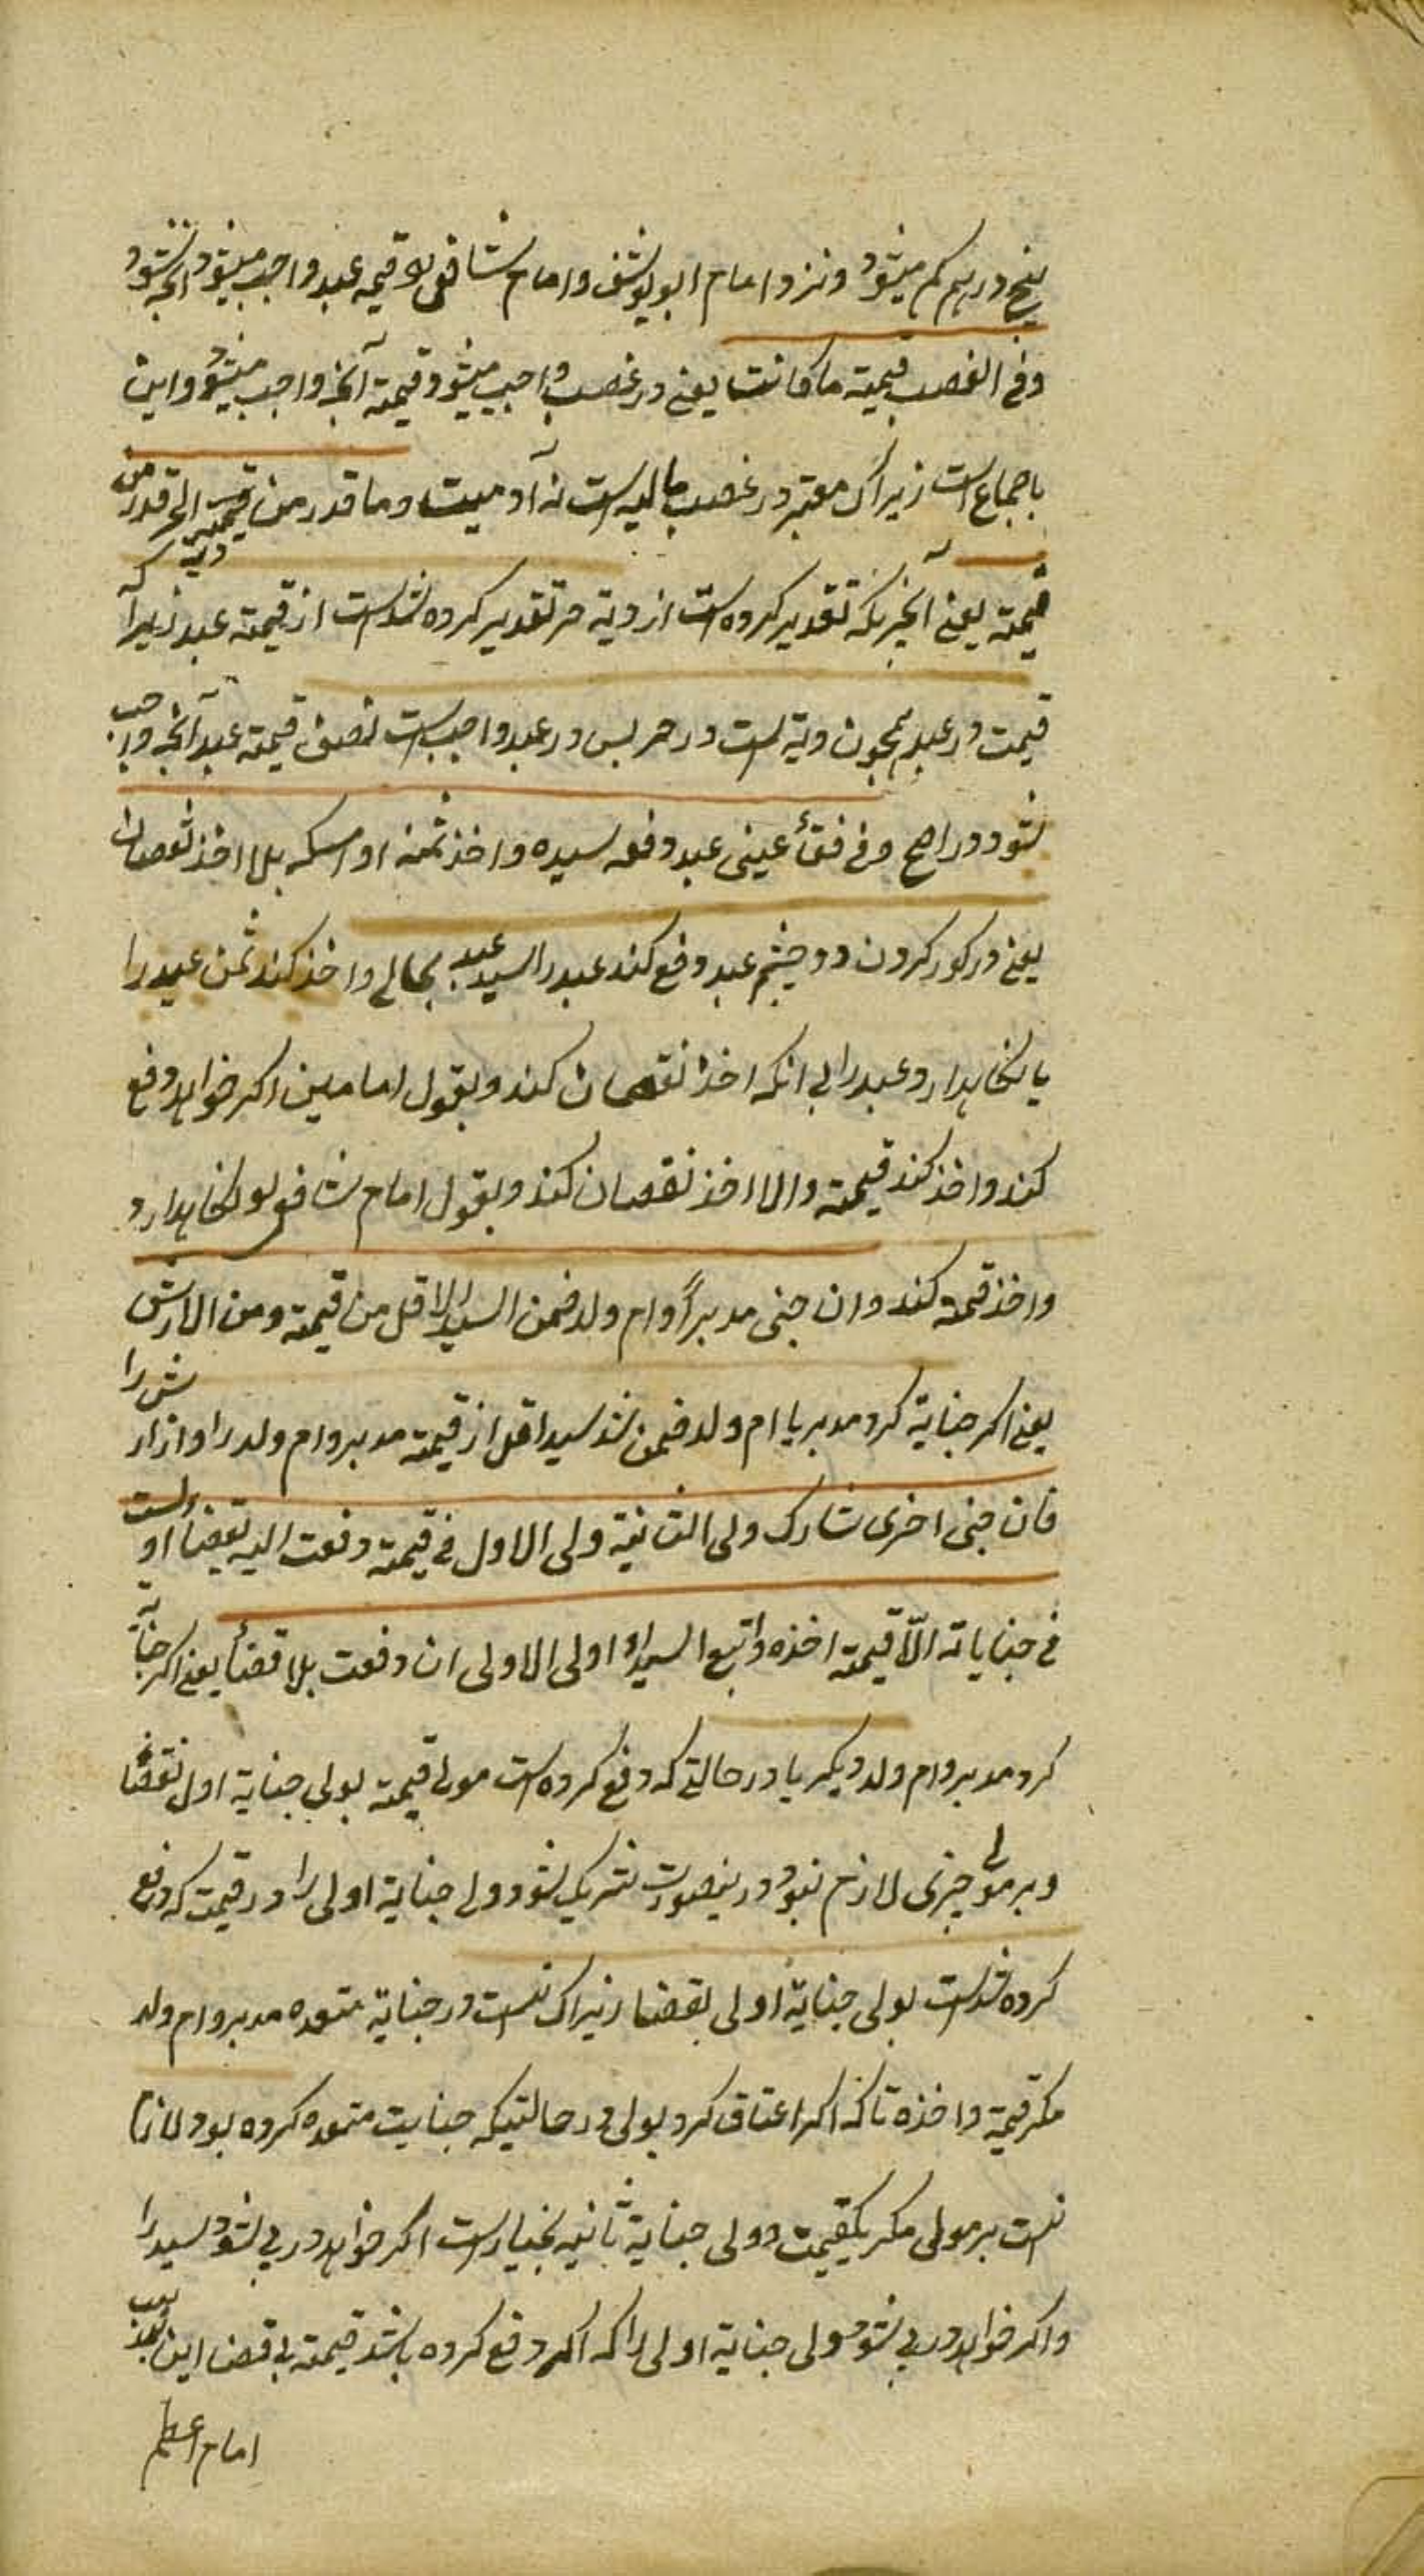 پنج درهم کم میشود ونزد امام ابو یوسف وامام شافعی قیمه عبد واجب میشود انچه شود
وفی الغصب قیمته ما کانت یعنی در غصب واجب میشود قیمته آنچه واجب میشود واین
باجماع است زیراک معتبر در غصب مالیه است نه آدمیت وما قدر من دیة الحر قدر من
قیمته یعنی آنچیزیکه تقدیر کرده است از دیة حر تقدیر کرده شد است از قیمته عبد زیراکه
قیمت در عبد همچون دیة است در حر پس در عبد واجب است نصف قیمته عبد آنچه واجب
شود در اصح وفی فقأ عینی عبد دفعه سیده واخذ ثمنه او امسکه بلا اخذ نقصان
یعنی در کور کردن دو چشم عبد دفع کند عبد را سید عبد بجانی واخذ کند ثمن عبد را
یا نگاهدارد عبد را بی انکه اخذ نقصان کند وبقول امامین اکر خواهد دفع
کند واخذ کند قیمته والا اخذ نقصان کند وبقول امام شافعی نگاهدارد
واخذ قیمة کند وان جنی مدبر او ام ولد ضمن السید الاقل من قیمته ومن الارش
یعنی اکر جنایة کرد مدبر یا ام ولد ضمن شد سید اقل از قیمته مدبر وام ولد را واز ارش را
فان جنی اخری شارک ولی الثانیة ولی الاول فی قیمته دفعت الیه بقضا اولیست
فی جنایاته الا قیمته اخذه واتبع السید او ولی الاولی ان دفعت بلا قضأ یعنی اکر جنایة
کرد مدبر وام ولد دیکر یا در حالتی که دفع کرده است مولی قیمته بولی جنایة اول بقضا
وبر مولی چیزی لازم نبود درینصورت شریک شود ولی جنایة اولی را در قیمت که دفع
کرده شد است بولی جنایة اولی بقضا زیراک نیست در جنایة متعدده مدبر وام ولد
مکر قیمة واخذه تا که اکر اعتاق کرد بولی در حالتیکه جنایت متعدده کرده بود لازم
نیست بر مولی مکر یکقیمت و ولی جنایة ثانیه بخیار است اکر خواهد در پی شود سید را
واکر خواهد در پی شود ولی جنایة اولی را که اکر دفع کرده باشد قیمته بی قضا این مذهب
امام اعظم